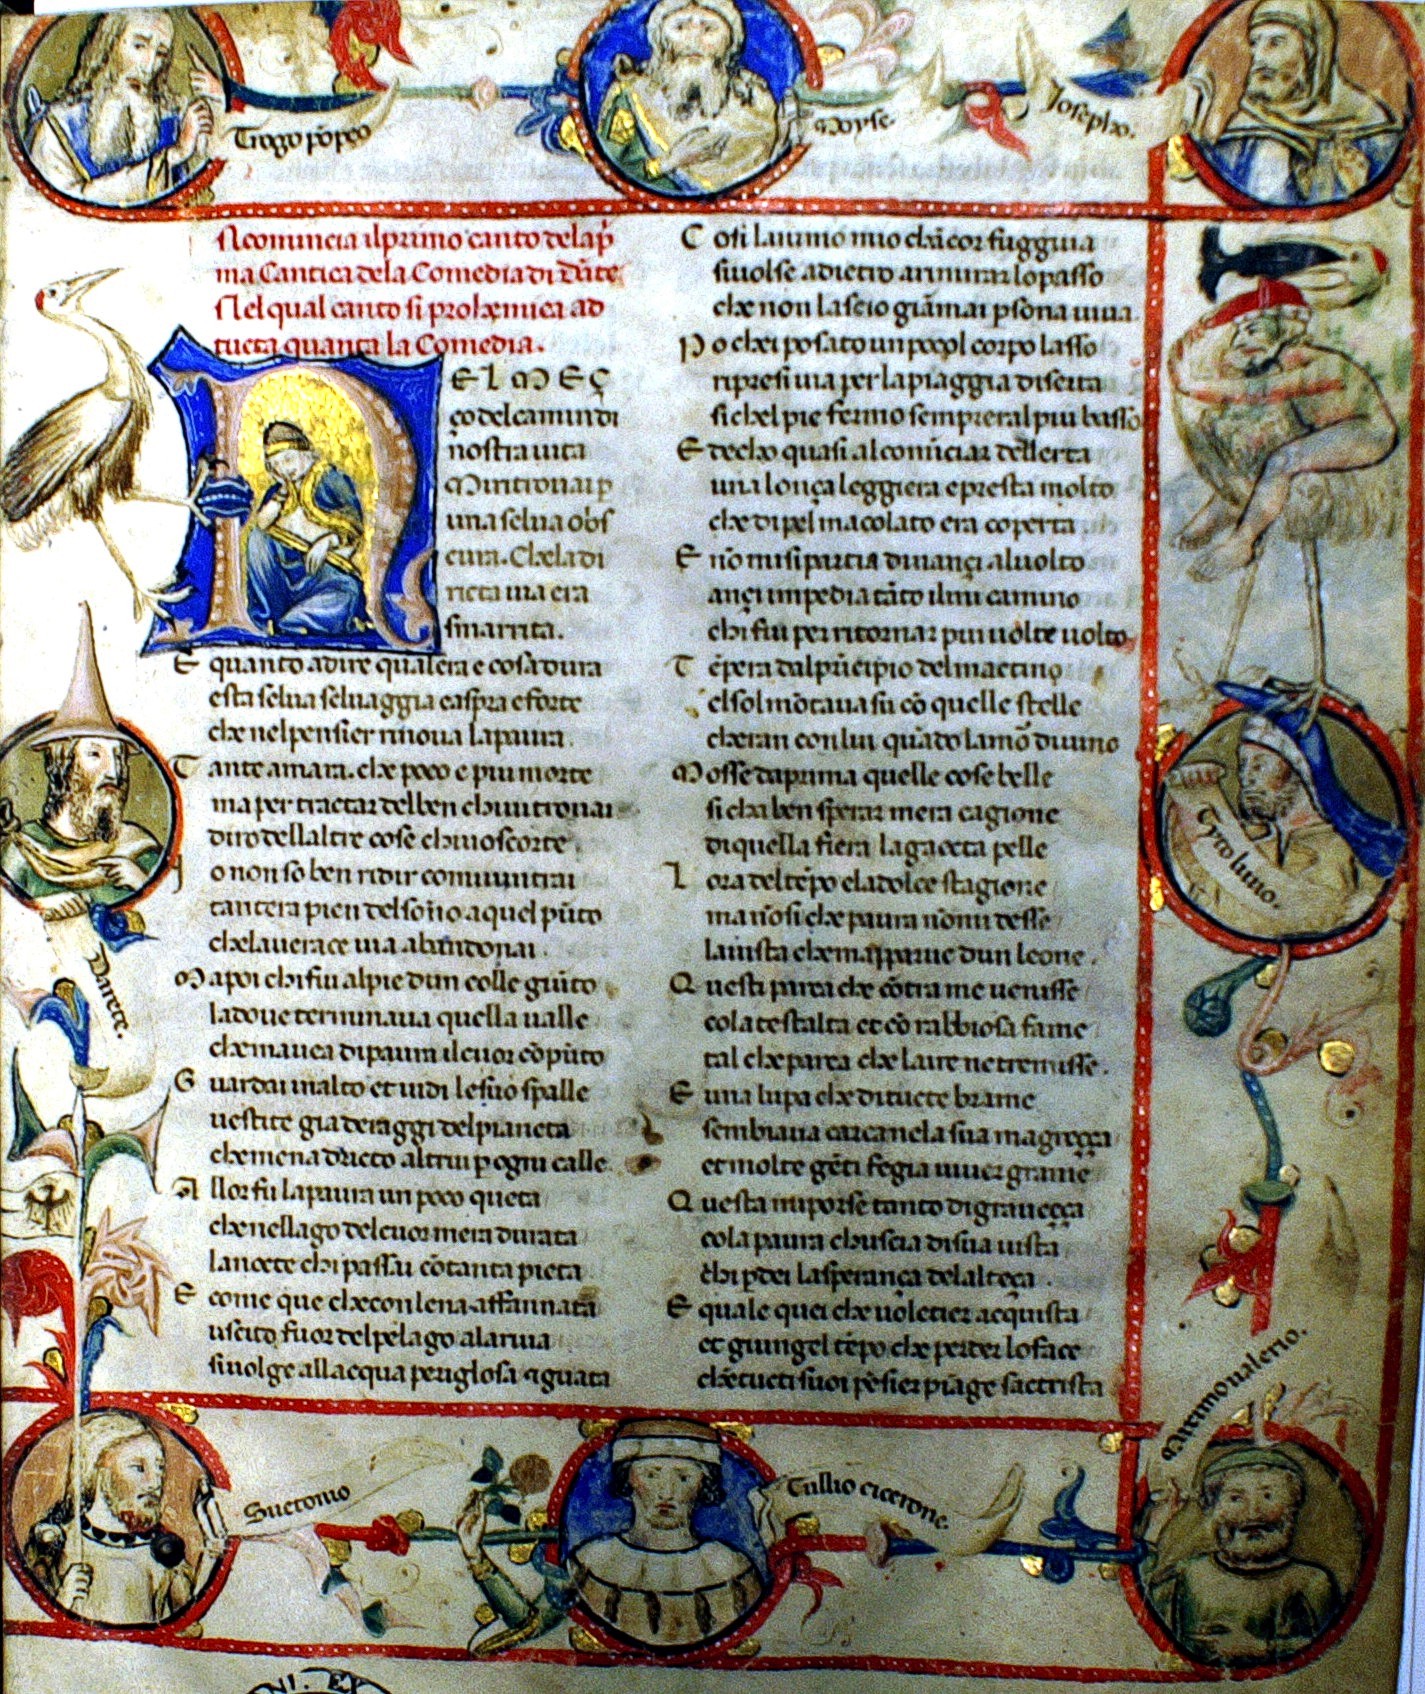 Trogo põpeo
Moyse
Josepho.
Nconuncia ilprimo canto delap̃
ma Cantica dela Comedia di Dãte
Nel qual canto si prohemiça ad
tucta quanta la Comedia.
NEL MEÇ
ço del camin di
nostra uita
Mi ritrouai p
una selua obs
cura. Che la di
ricta uia era
smarrita.
E quanto adire qualera e cosa dura
esta selua seluaggia easpra eforte
che nel pensier rinoua lapaura.
Tante amara. che poco e piu morte
ma per tractar delben chiui trouai
diro dellaltre cose chiuo scorte.
Jo non so ben ridir comiuintrai
tantera pien del sonno aquel pũto
che lauerace uia abandonai.
Ma poi chi fui alpie dun colle giũto
ladoue terminaua quella ualle
che mauea dipaura il cuor cõpũto
Guardai inalto et uidi le suo spalle
uestite gia deraggi del pianeta
che mena dricto altrui p ogni calle.
Allor fu la paura un poco queta
che nellago del cuor mera durata
la nocte chi passai cõtanta pieta
E come que che con lena affannata
uscito fuor del pelago alariua
siuolge allacqua periglosa 7 guata
Cosi lanimo mio chãcor fuggiua
siuolse adietro arimirar lo passo
che non lascio giãmai psona uiua.
Po chei posato un poco el corpo lasso
ripresi uia per la piaggia diserta
si chel pie fermo sempreral piu basso
E deccho quasi al comiciar dellerta
una lonça leggiera e presta molto
che di pel macolato era coperta.
E nõ mi si partia dinançi al uolto
ançi impedia tãto il mi camino
chi fui per ritornar piu uolte uolto
Tẽpera dal prĩcipio del mactino
el sol mõtaua su cõ quelle stelle
cheran con lui quãdo lamõ diuino
Mosse daprima quelle cose belle
si cha ben sperar mera cagione
di quella fiera la gaecta pelle
Lora del tẽpo ela dolce stagione
ma nõ si che paura nõmi desse
la uista che mapparue dun leone.
Questi parea che cõtra me uenisse
cola testalta et cõ rabbiosa fame
tal che parea che laire ne tremisse.
E una lupa che di tucte brame
sembiaua carca nela sua magreçça
et molte gẽti fe gia uiuer grame
Questa mi porse tanto di graueçça
cola paura chuscia di sua uista
chi pdei la sperança delalteça.
E quale quei che uoletier acquista
et giungel tẽpo che perder lo face
chẽ tucti suoi pẽsier piãge sactrista
Darete.
Tyto liuio.
Suetonio
Tullio cicerone.
Maximo ualerio.
NI. EX